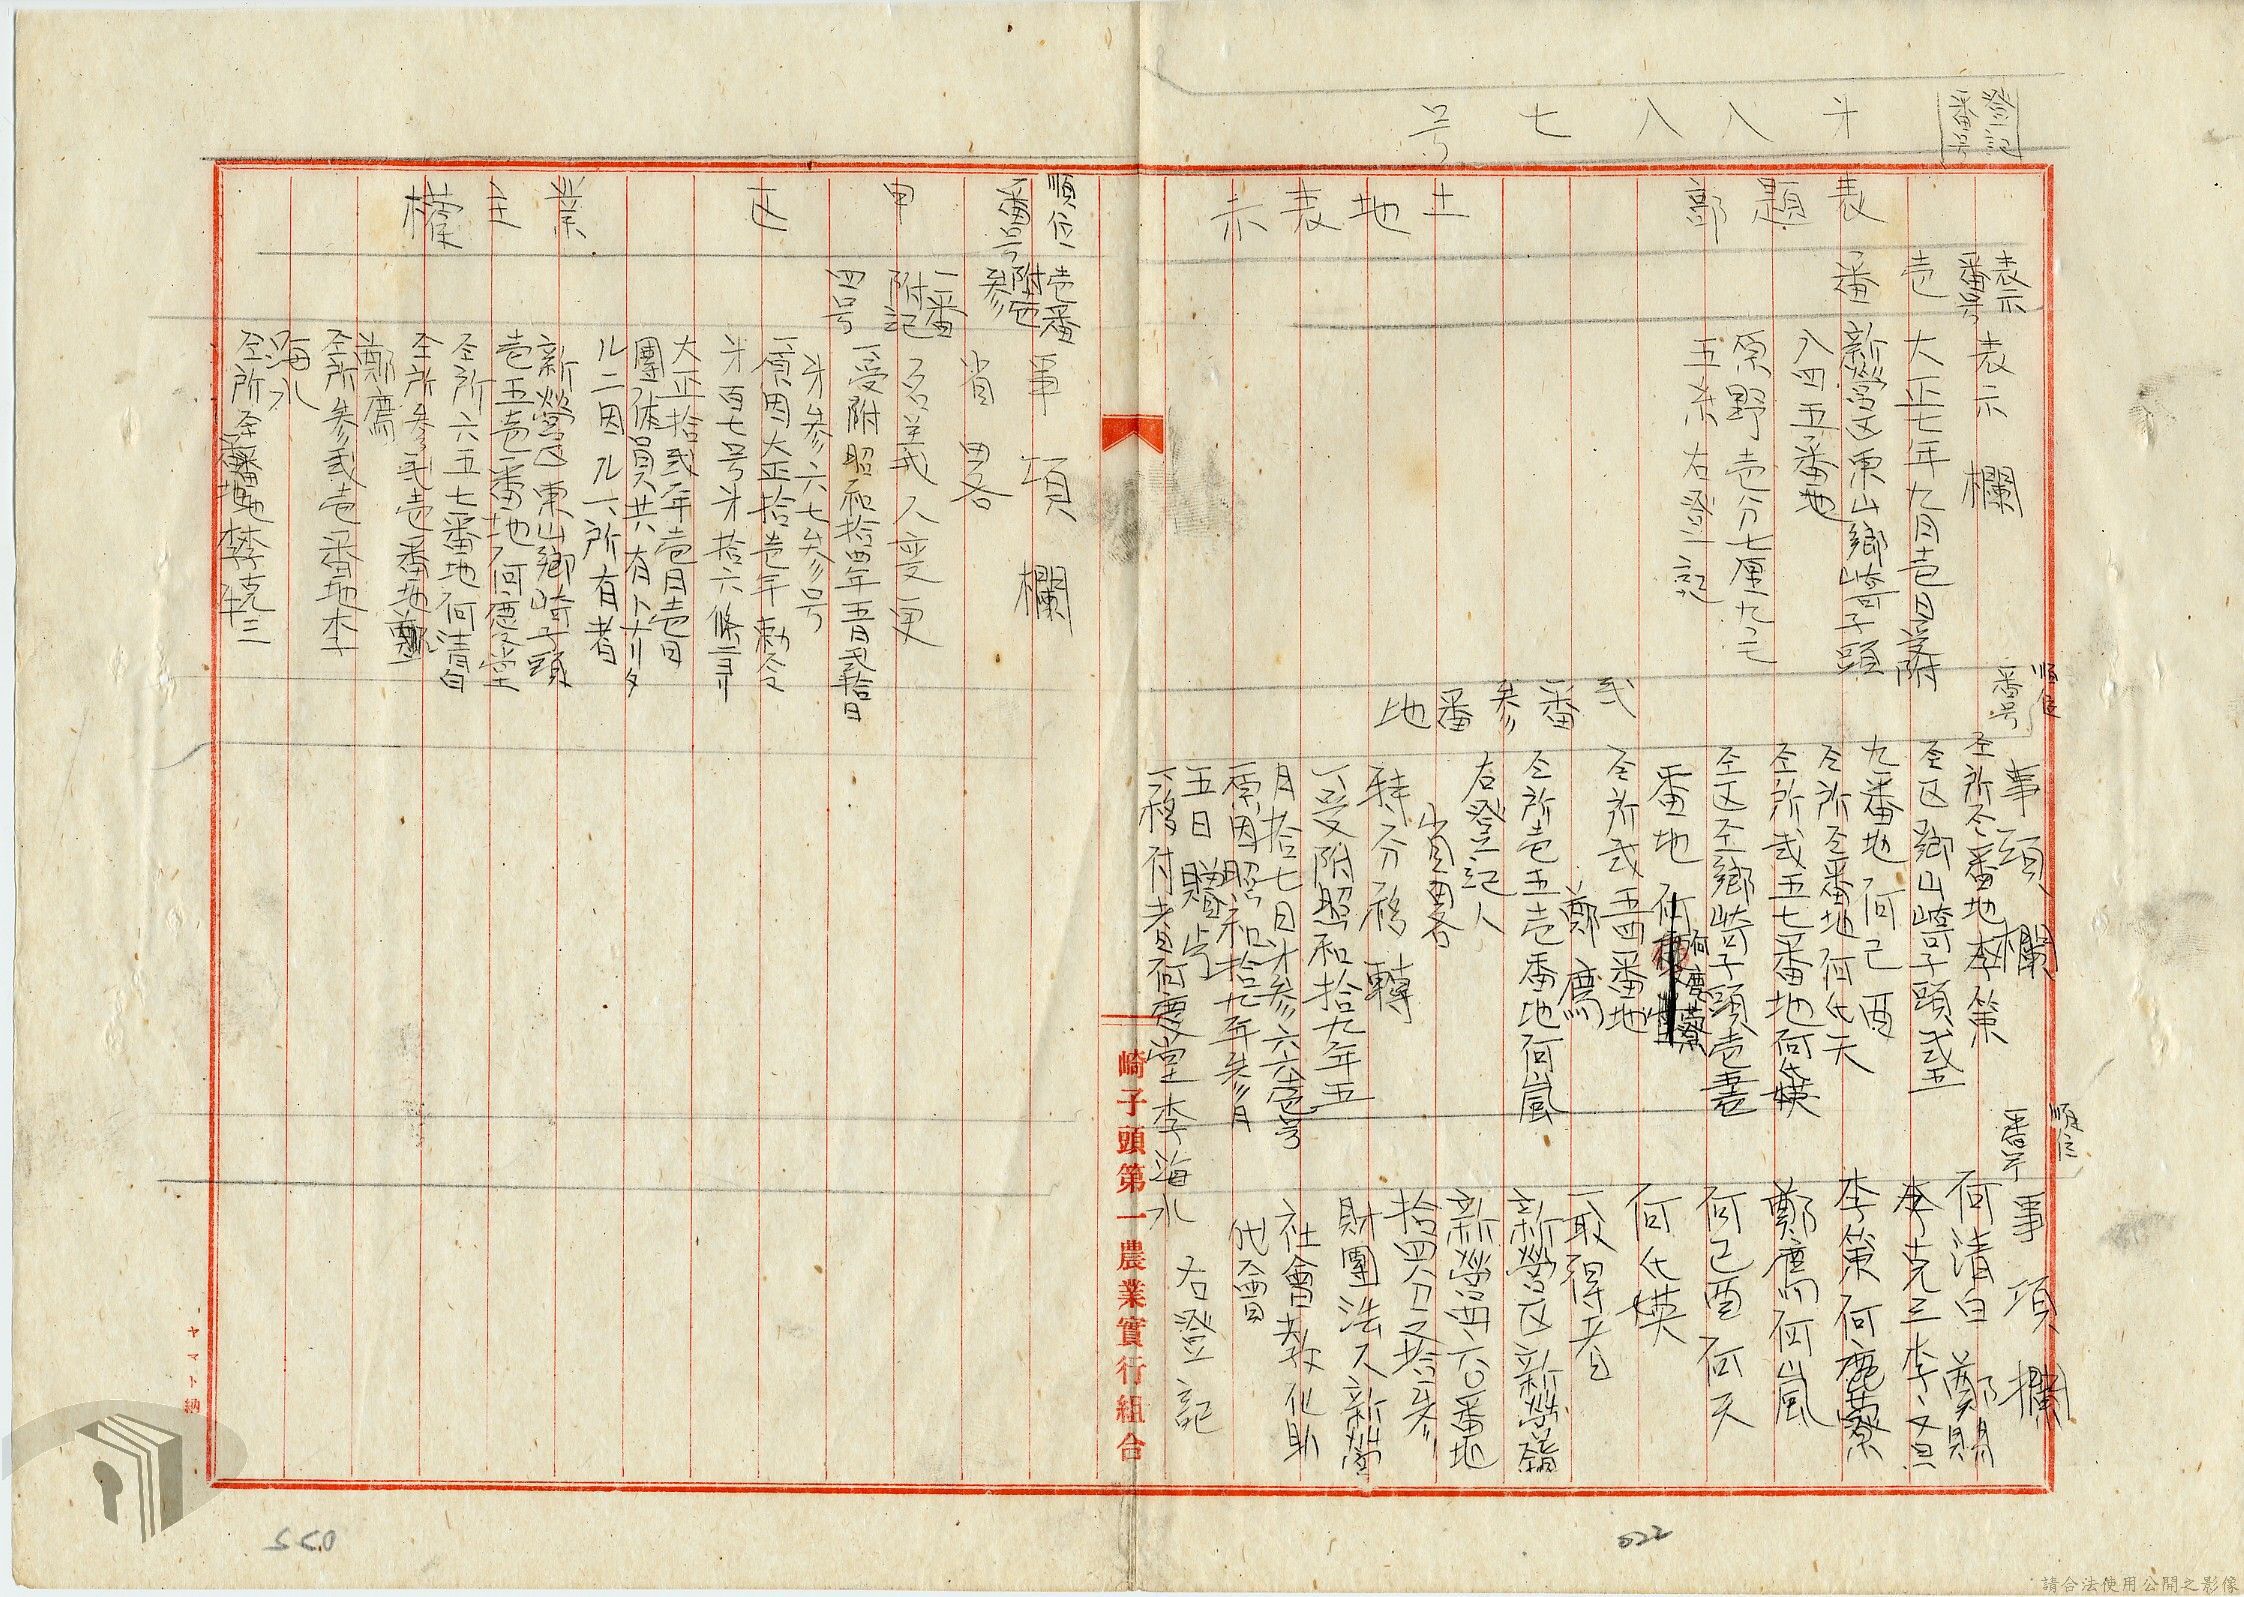 登記
番号
才八八七号
表題部
土地表示
表示
番号
表示欄
壱番
大正七年九月壱日受附
新營区東山鄉崎子頭
八四五番地
原野壱分七厘九毛
五糸右登記
順位
番号
事項欄
仝所仝番地李策
仝区鄉山崎子頭弍五
九番地何己酉
仝所仝番地何氏天
仝所弍五七番地何氏媖
仝区仝鄉崎子頭壱壱
番地何慶蘭
弍番
仝所弍五四番地
鄭鷹
仝所壱五壱番地何嵐
右登記人
省畧
参番地
持分移轉
一受附昭和拾九年五
月拾七日才参六六壱号
一原因昭和拾九年参月
五日贈与
一移付者何慶堂李海水
順位
番号
事項欄
何清白 鄭賜
李克三李文旦
李策何鹿藔
鄭鷹何嵐
何己酉何天
何氏媖
一取得者
新營区新營鎮
新營西六〇番地
拾四分之拾参
財團法人新營
社會教化助
代會
右登記
崎子頭第一農業實行組合
順位
番号
事項欄
甲区
業主權
壱番
附記
参
省畧
一番
附記
四号
名義人変更
一受附昭和拾四年五月弍拾日
才参六七参号
一原因大正拾壱年勅令
才百七号才拾六條ニヨリ
大正拾弍年壱月壱日
團体員共有トナリタ
ルニ因ル一所有者
新營区東山鄉崎子頭
壱五壱番地何慶堂
仝所六五七番地何清白
仝所参弍壱番地鄭
鄭鷹
仝所参弍壱番地李
海水
仝所仝番地李克三
ヤマト納
022
請合法使用公開之影像